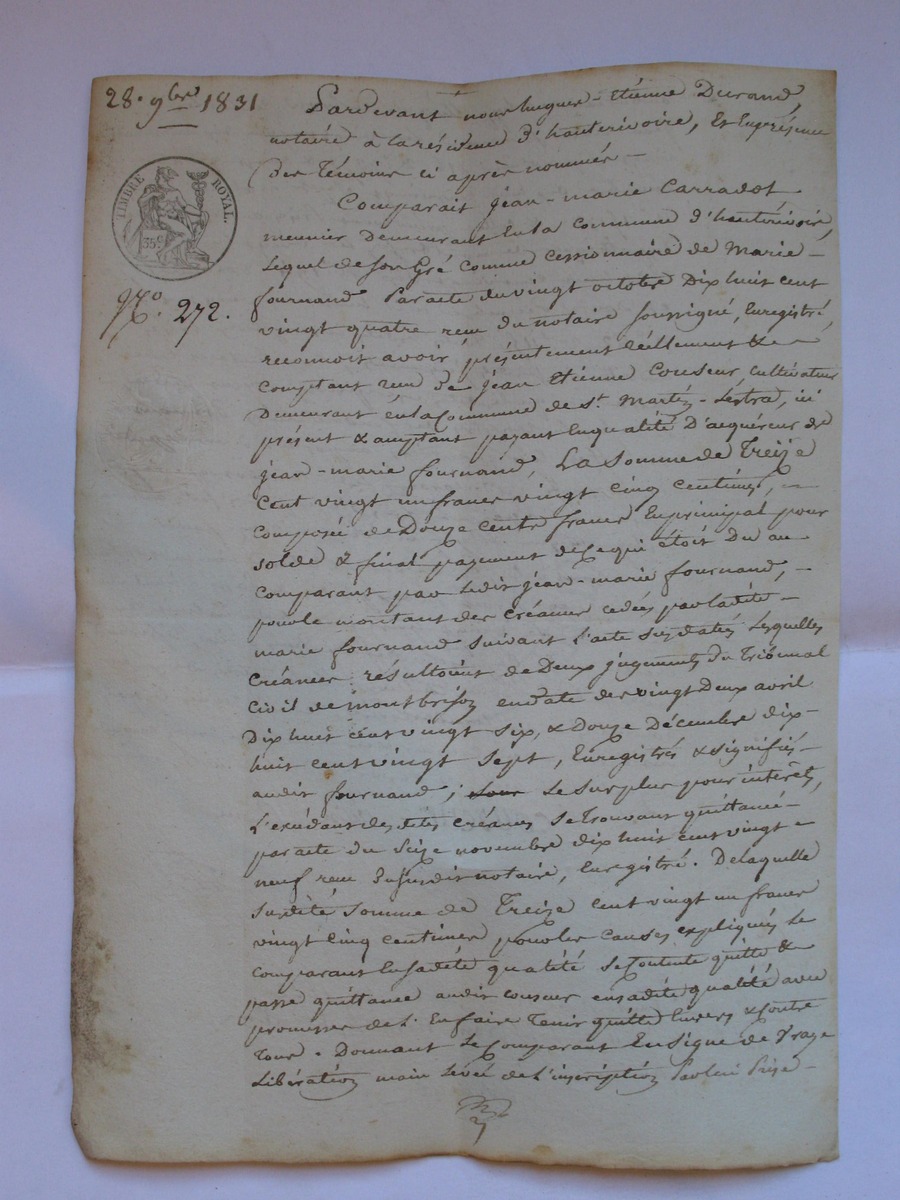 28. 9bre 1831
TIMBRE ROYAL.
35c
No. 272.
Pardevant nous hugues-étienne Durand,
notaire à la résidence d'hauterivoire, et en présence
des témoins ci après nommés —
Comparait jéan-marie Carradot
meunier demeurant en la commune d'hauterivoire,
Lequel de son gré comme cessionnaire de Marie
fournand par acte du vingt octobre dix huit cent
vingt quatre reçu du notaire soussigné, Enregistré,
reconnoit avoir présentement réellement &
comptant reçu de jéan Etienne Couseur cultivateur
demeurant en la commune de st. Martin-Léstra, ici
présent & acceptant payant en qualité d'acquéreur de
jéan-marie fournand, La somme de Treize
cent vingt un francs vingt cinq centimes, —
composée de Douze cents francs en principal pour
solde & final payement de ce qui étoit du au
comparant par ledit jéan-marie fournand, —
pour le montant des créances cédées par ladite —
marie fournand suivant l'acte susdaté, Lesquelles
créances résultoient de Deux jugements du Tribunal
civil de montbrison en date des vingt deux avril
dix huit cent vingt six, & douze décembre dix-
huit cent vingt sept, Enregistrés & signifiés —
audit fournand; Le surplus pour intérêts,
L'excédant desdites créances se trouvant quittancé —
par acte du seize novembre dix huit cent vingt —
neuf reçu dususdit notaire, Enregistré. De laquelle
susdite somme de Treize cent vingt un francs
vingt cinq centimes pour les causes expliquées Le
comparant en sadite qualité se contente quitte &
passe quittance audit couseur en sadite qualité avec
promesse de L'en faire tenir quitte Envers & contre
tous. Donnant Le comparant En signe de vraye
Libération main levée de L'inscription par lui Prise —